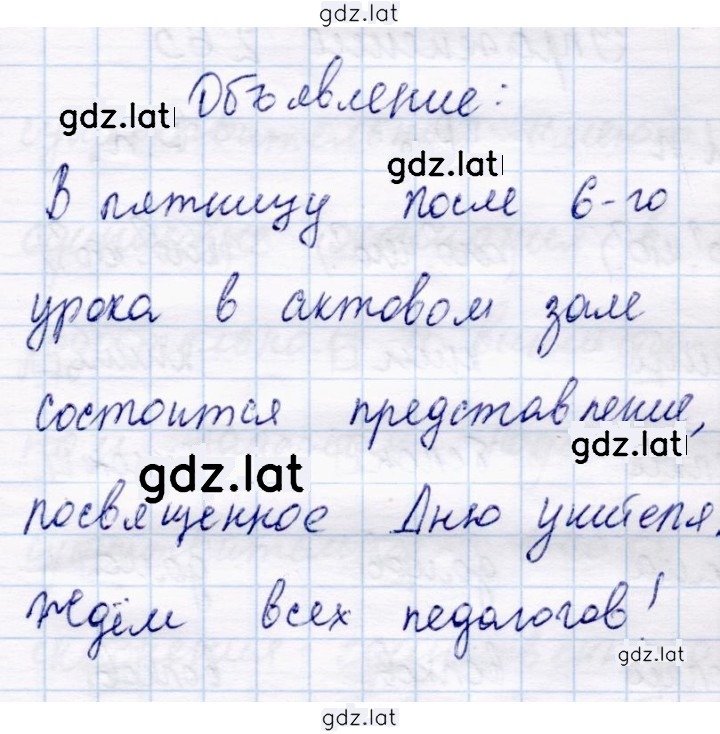 gdz.lat
Объявление:
gdz.lat
gdz.lat
В пятницу после 6-го
урока в актовом зале
состоится представление,
gdz.lat
gdz.lat
посвященное Дню учителя.
Ждём всех педагогов!
gdz.lat
gdz.lat